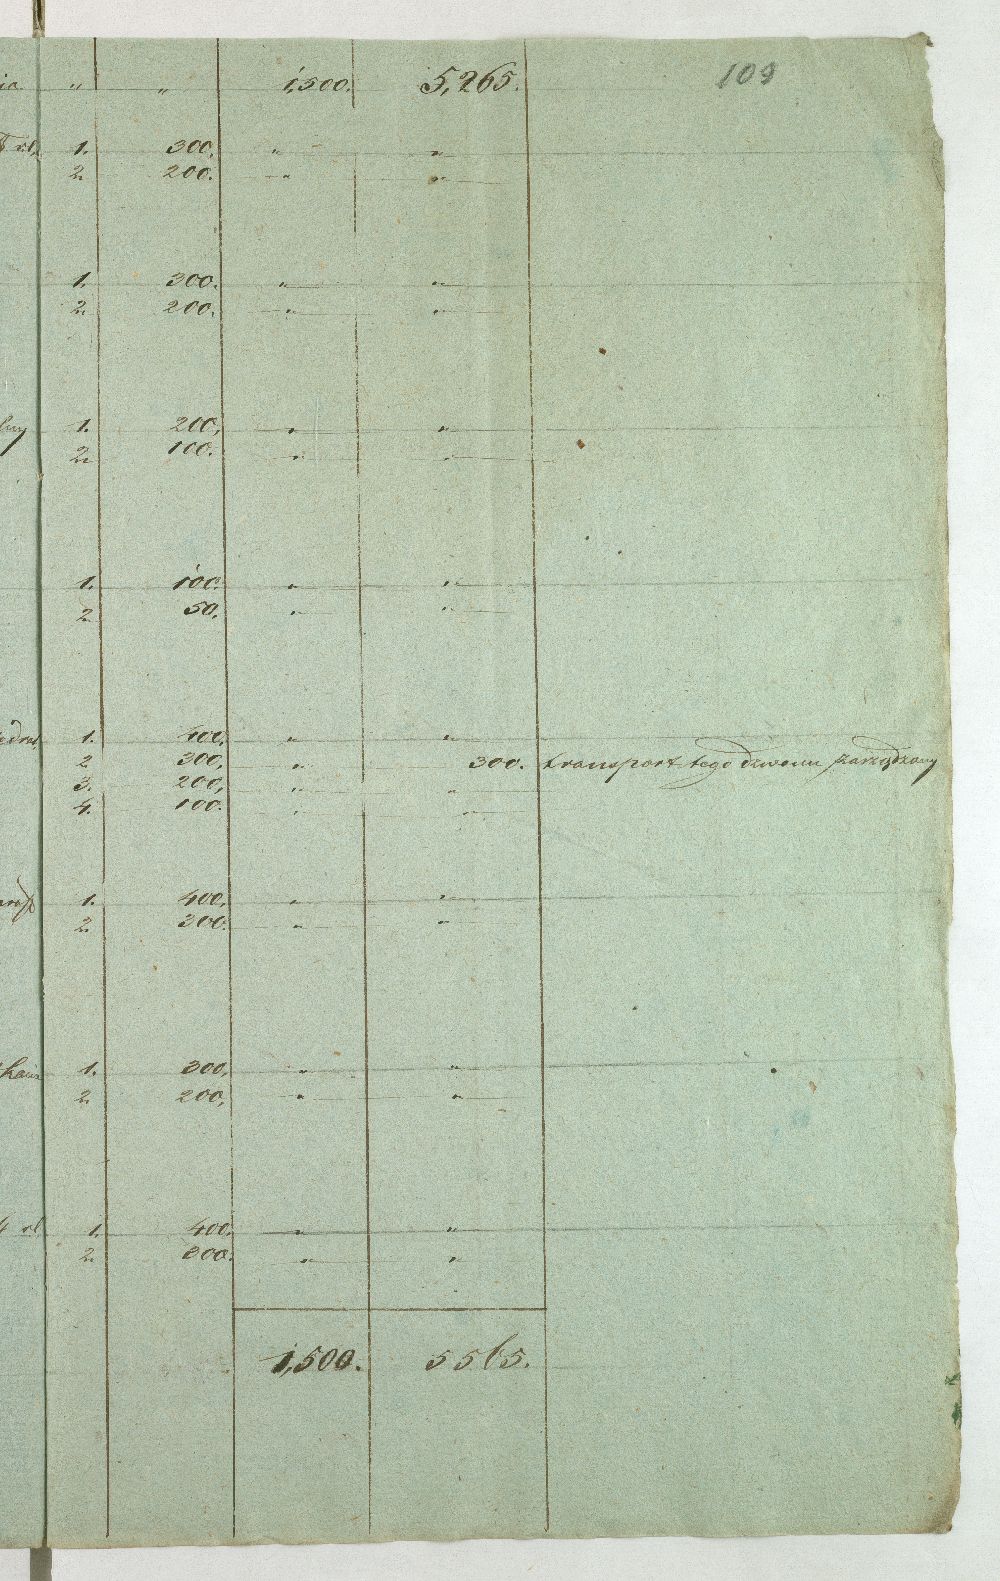 109
" " 1,500. 5,265.
1. 300. " "
2. 200. " "
1. 300. " "
2. 200. " "
1. 200. " "
2. 100. " "
1. 100. " "
2. 50. " "
1. 400. " "
2 300. " 300. transport tego dzwonu zarządzony
3. 200. " "
4. 100. " "
1. 400. " "
2. 300. " "
1. 300. " "
2. 200. " "
1. 400. " "
2. 200. " "
1,500. 5565.